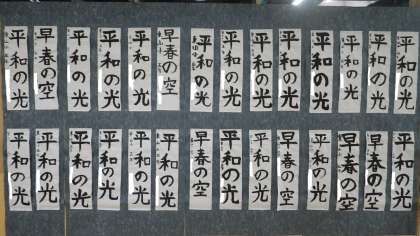 平和の光
早春の空
平和の光
平和の光
平和の光
早春の空
平和の光
平和の光
平和の光
平和の光
平和の光
平和の光
平和の光
平和の光
平和の光
平和の光
平和の光
平和の光
平和の光
平和の光
早春の空
平和の光
平和の光
早春の空
平和の光
早春の空
早春の空
平和の光